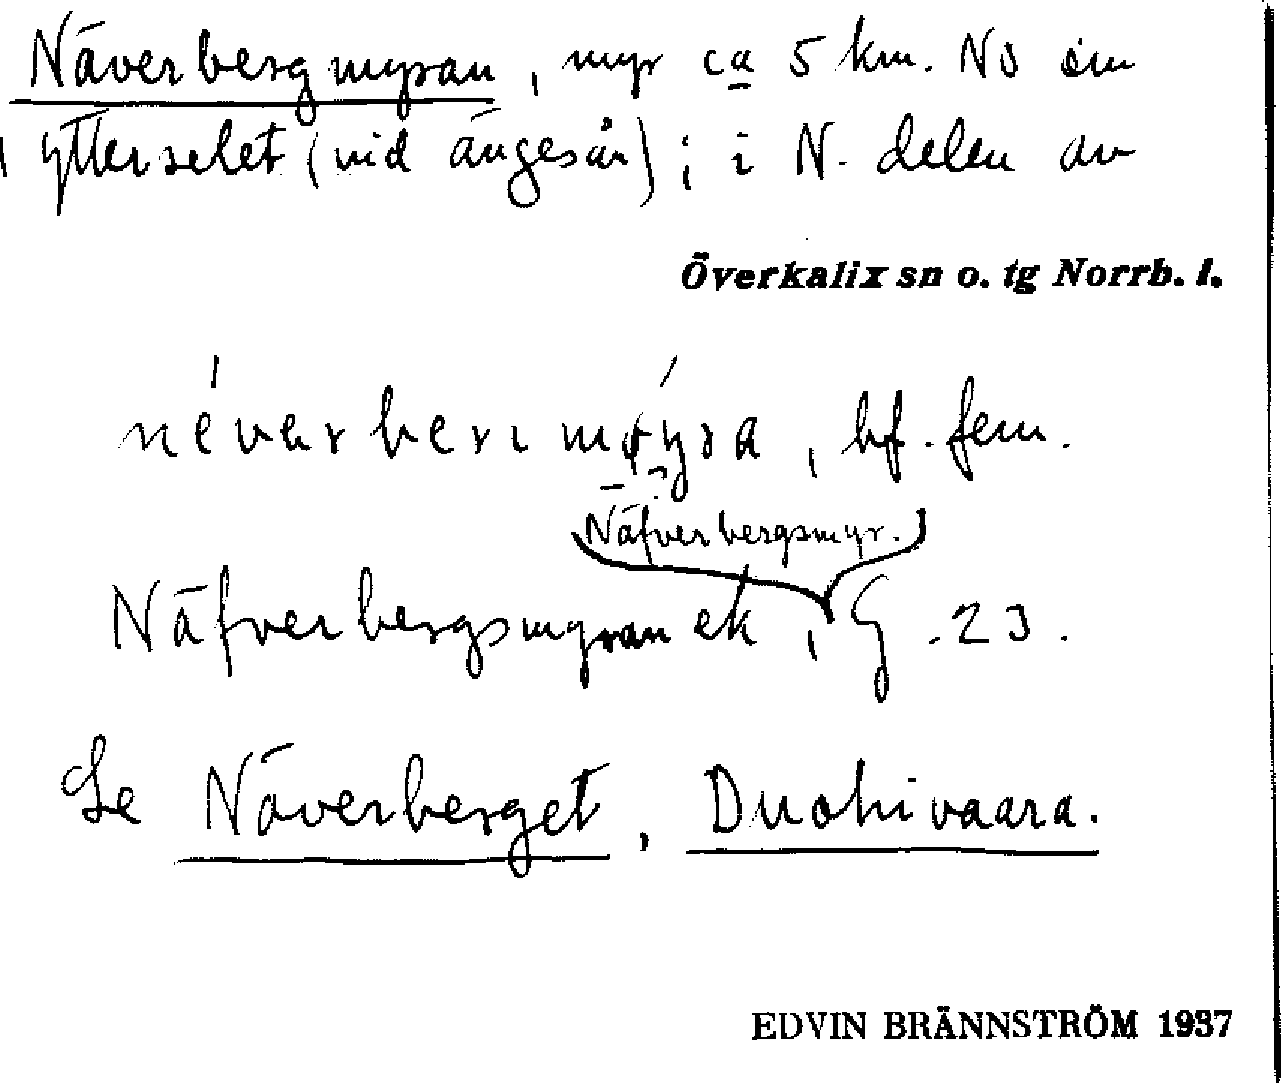 Näverbergmyran, myr ca 5 km. NO om
Ytterselet (vid ängesån); i N. delen av
Överkalix sn o. tg Norrb. l.
néverberımøyra, bf. fem.
Näfverbergsmyr.
Näfverbergsmyran ek, G. 23.
Se Näverberget, Duohivaara.
EDVIN BRÄNNSTRÖM 1937